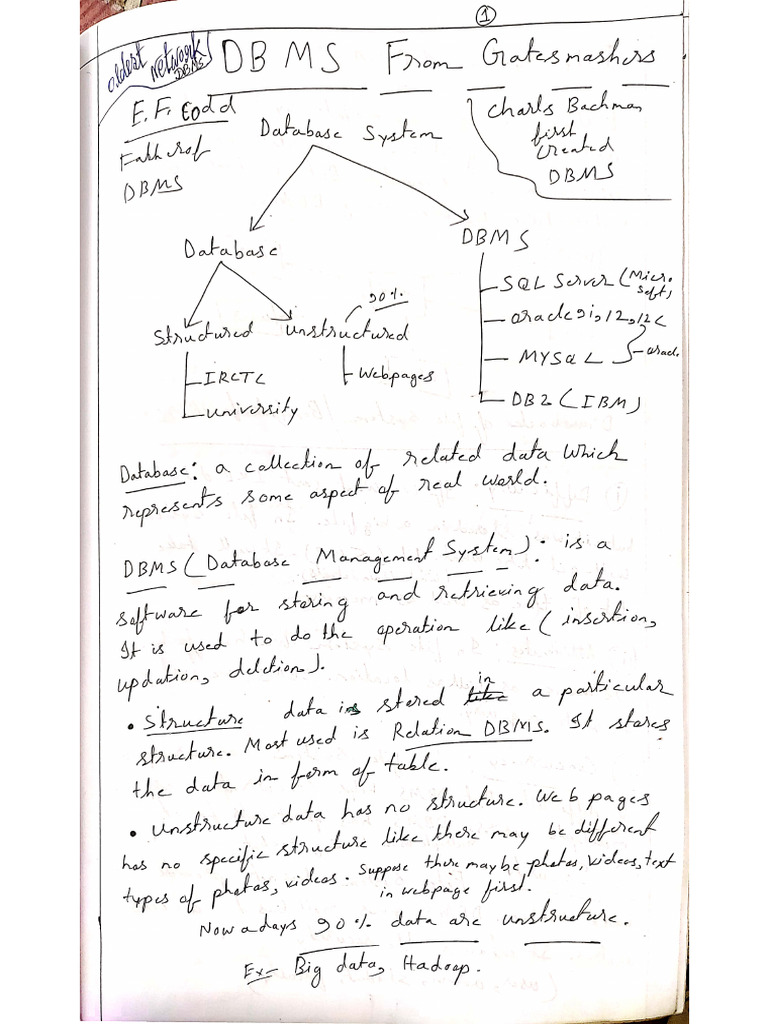 1
oldest network DBMS
DBMS From Gatesmashers
E.F. Codd
Father of
DBMS
Charls Bachman
first
created
DBMS
Database System
Database
DBMS
Structured
Unstructured
90%
IRCTC
University
Webpages
SQL Server (Microsoft)
Oracle 9i, 12, 12c
MYSQL
Oracle
DB2 (IBM)
Database: a collection of related data which
represents some aspect of real world.
DBMS (Database Management System): is a
software for storing and retrieving data.
It is used to do the operation like (insertion,
updation, deletion).
• Structure data is stored like in a particular
structure. Most used is Relation DBMS. It stores
the data in form of table.
• Unstructure data has no structure. Web pages
has no specific structure like there may be different
types of photos, videos. Suppose there maybe photos, videos, text
in webpage first.
Now a days 90% data are unstructure.
Ex- Big data, Hadoop.